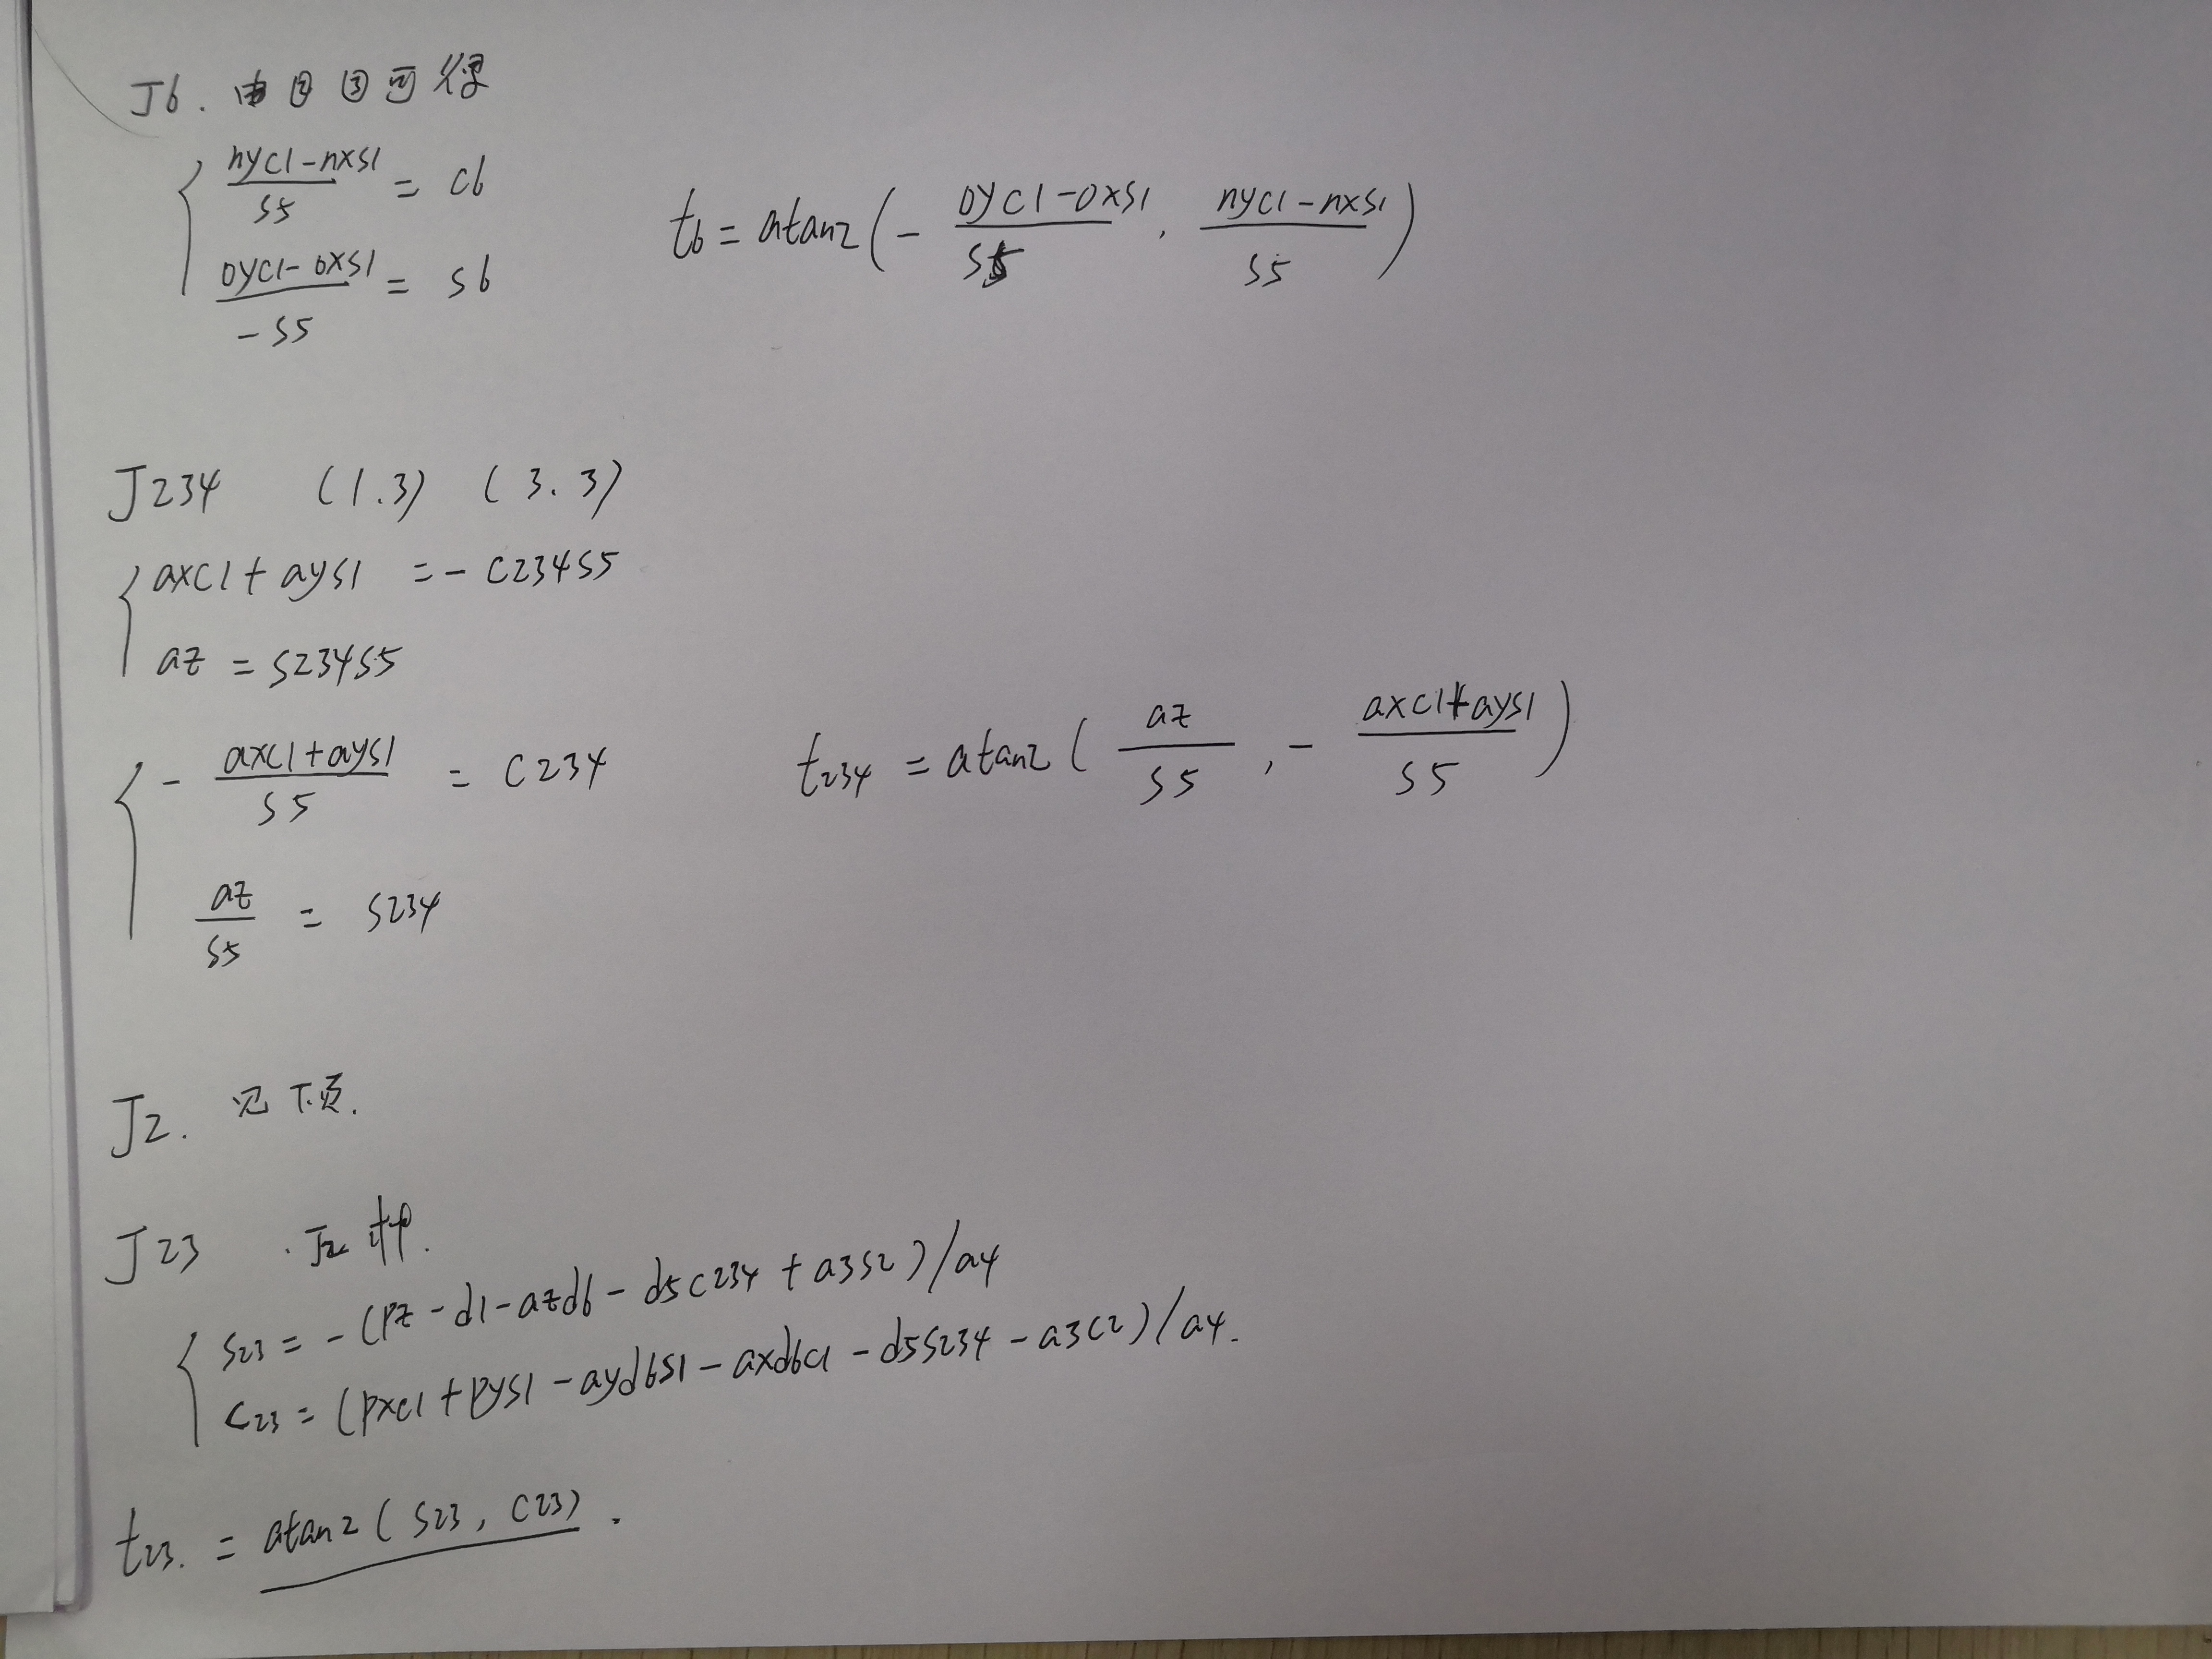 J6. 由②③可得
{ (nyc1-nxs1)/s5 = c6
(oyc1-oxs1)/-s5 = s6
t6 = atan2(- (oyc1-oxs1)/s5, (nyc1-nxs1)/s5)
J234 (1.3) (3.3)
{ axc1+ays1 = -c234s5
az = s234s5
{ - (axc1+ays1)/s5 = c234
az/s5 = s234
t234 = atan2(az/s5, - (axc1+ays1)/s5)
J2. 见下页.
J23 . J2 中.
{ s23 = -(pz-d1-azd6-d5c234+a3s2)/a4
c23 = (pxc1+pys1-ayd6s1-axd6c1-d5s234-a3c2)/a4.
t23. = atan2(s23, c23).